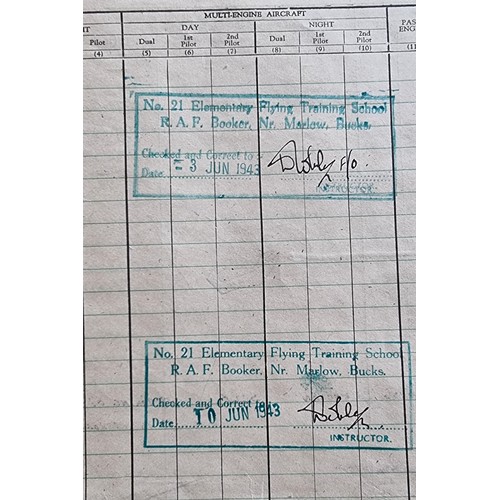 MULTI-ENGINE AIRCRAFT
DAY NIGHT
Pilot Dual 1st Pilot 2nd Pilot Dual 1st Pilot 2nd Pilot
(4) (5) (6) (7) (8) (9) (10) (11
No. 21 Elementary Flying Training School
R.A.F. Booker, Nr. Marlow, Bucks.
Checked and Correct to
Date - 3 JUN 1943 F/O.
INSTRUCTOR.
No. 21 Elementary Flying Training School
R.A.F. Booker, Nr. Marlow, Bucks.
Checked and Correct to
Date 10 JUN 1943
INSTRUCTOR.